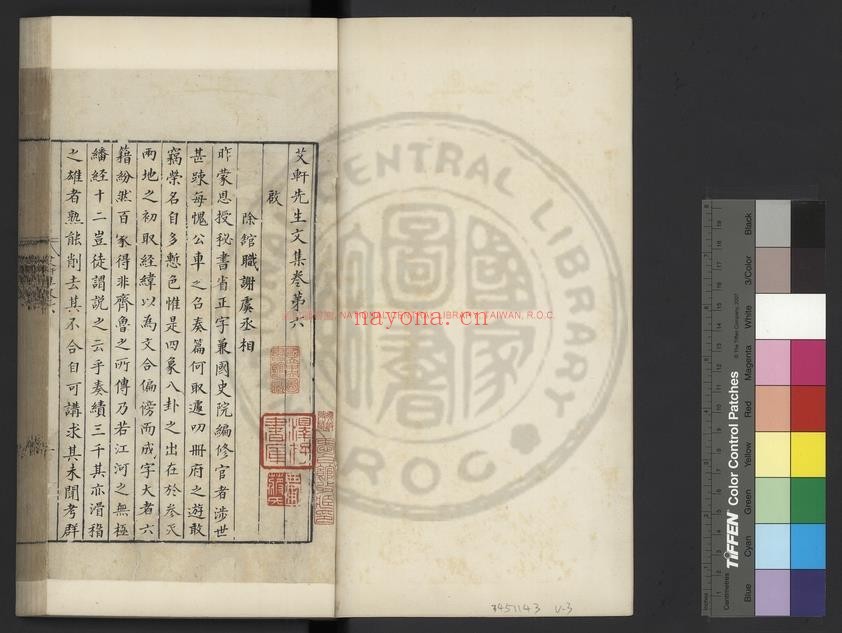 艾軒先生文集卷第六
啟
除館職謝虞丞相
昨蒙恩授秘書省正字兼國史院編修官者涉世
甚踈每愧公車之召奏篇何取遽叨冊府之遊敢
竊榮名自多慙色惟是四象八卦之出在於參天
兩地之初取經緯以為文合偏傍而成字大者六
籍紛然百家得非齊魯之所傳乃若江河之無極
繙經十二豈徒謂說之云乎奏績三千其亦滑稽
之雄者熟能削去其不合自可講求其未聞考群
NATIONAL CENTRAL LIBRARY, TAIWAN, R.O.C.
nayona.cn
CENTRAL LIBRARY
R.O.C
國家圖書
澤存書庫
7451143 V-3
TIFFEN Color Control Patches
© The Tiffen Company, 2007
Inches
Centimetres
Blue
Cyan
Green
Yellow
Red
Magenta
White
3/Color
Black